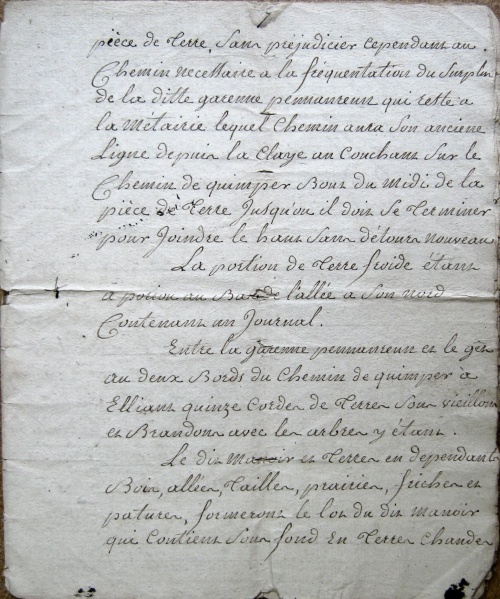 7
pièce de Terre, sans prejudicier cependant au
Chemin necessaire a la fréquentation du Surplus
de la ditte garenne pennanreun qui reste a
la Métairie lequel Chemin aura son ancienne
Ligne depuis la Claye au Couchant sur le
Chemin de quimper Bout du midi de la
pièce de Terre Jusqu'ou il doit se Terminer
pour Joindre le haut sans détour nouveau
La portion de Terre froide étant
a au Bas de l'allée a son nord
Contenant un Journal.
Entre la garenne pennanreun et le
au deux Bords du Chemin de quimper a
Elliant quinze Cordes de Terre sous vieillons
et Brandons avec les arbres y étant.
Le dit Manoir et Terres en dependant
Bois, allées, Tailles, prairies, friches et
patures, formeront le lot du dit manoir
qui Contient sous fond En Terre Chaude